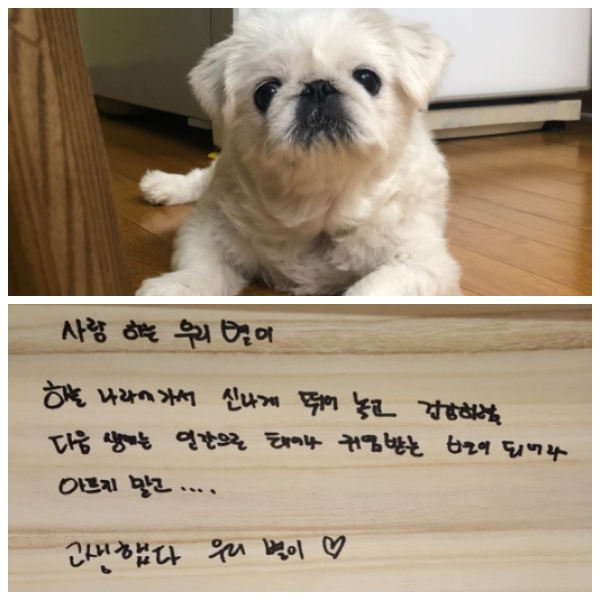 사랑 하는 우리 별이
하늘 나라에 가서 신나게 뛰어 놀고
다음 생에는 인간으로 태어나 귀염받는 별이 되거라
아프지 말고....
고생했다 우리 별이 ♡